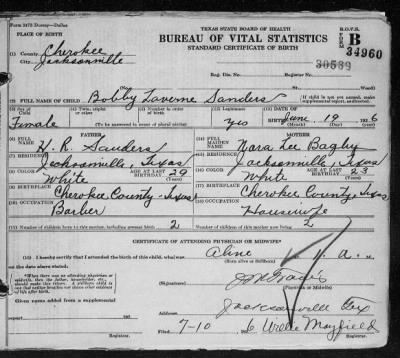 Form 3473 Dorsey—Dallas
TEXAS STATE BOARD OF HEALTH
BUREAU OF VITAL STATISTICS
STANDARD CERTIFICATE OF BIRTH
B
34960
PLACE OF BIRTH
(1) County Cherokee
City Jacksonville
30589
Reg. Dis. No. Register No.
(No. (Ward)
(2) FULL NAME OF CHILD Bobby Laverne Sanders
Female yes (12) DATE OF BIRTH June 19 1926
(To be answered in event of plural births)
FATHER MOTHER
(6) FULL NAME H. R. Sanders FULL MAIDEN NAME Nara Lee Bagby
(7) RESIDENCE Jacksonville, Texas RESIDENCE Jacksonville, Texas
(8) COLOR White AGE AT LAST BIRTHDAY 29 (Years) COLOR White AGE AT LAST BIRTHDAY 23 (Years)
BIRTHPLACE Cherokee County, Texas BIRTHPLACE Cherokee County, Texas
(10) OCCUPATION Barber OCCUPATION Housewife
Number of children born to this mother, including present birth 2 Number of children of this mother now living 2
CERTIFICATE OF ATTENDING PHYSICIAN OR MIDWIFE*
I hereby certify that I attended the birth of this child, who was Aline at M.
(Born alive or Stillborn)
on the date above stated.
*When there was no attending physician or midwife, then the father, householder, etc., should make this return.
(Signature)
(Physician or Midwife)
Given names added from a supplemental report
Jacksonville Tex
7-10 6 Willie Mayfield
Registrar. Registrar.